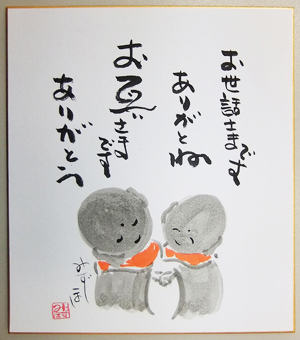 お世話さまです
ありがとね
お互いさまです
ありがとう
みずほ